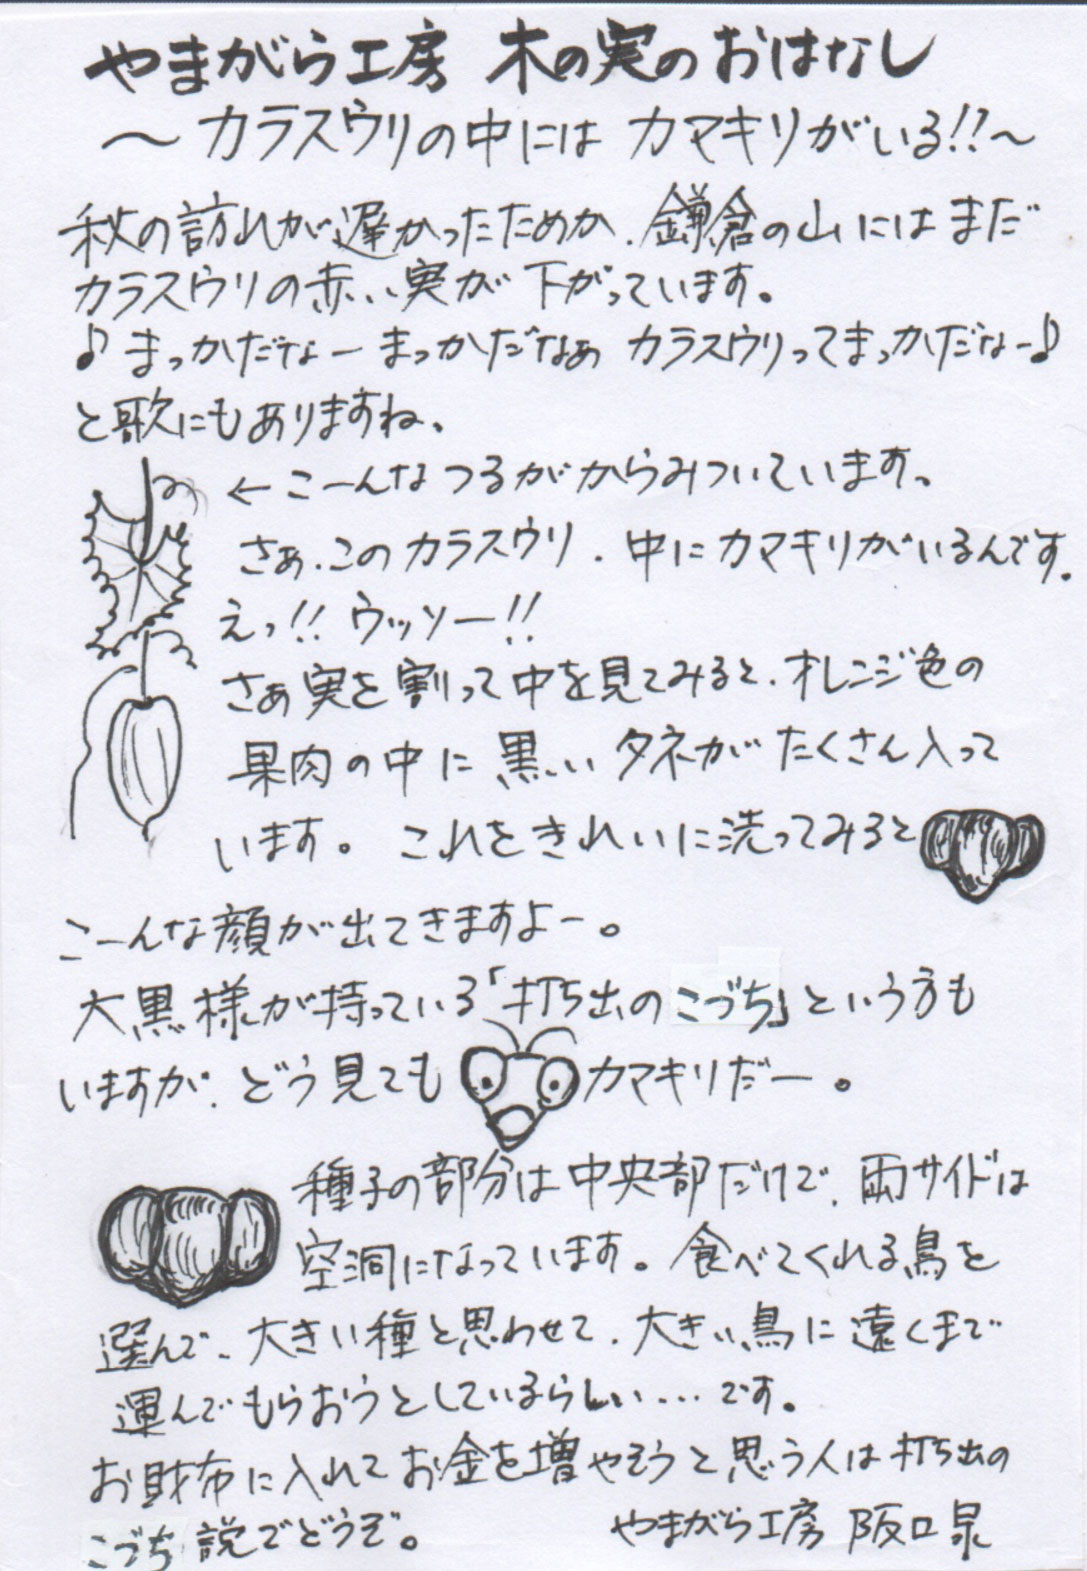 やまがら工房 木の実のおはなし
～カラスウリの中には カマキリがいる!!～
秋の訪れが遅かったためか、鎌倉の山にはまだ
カラスウリの赤い実が下がっています。
♪まっかだなー まっかだなぁ カラスウリってまっかだなー♪
と歌にもありますね。
←こーんなつるがからみついています。
さぁ、このカラスウリ、中にカマキリがいるんです。
えっ!! ウッソー!!
さぁ実を割って中を見てみると、オレンジ色の
果肉の中に黒いタネがたくさん入って
います。これをきれいに洗ってみると
こーんな顔が出てきますよー。
大黒様が持っている「打ち出のこづち」という方も
いますが、どう見ても カマキリだー。
種子の部分は中央部だけで、両サイドは
空洞になっています。食べてくれる鳥を
選んで、大きい種と思わせて、大きい鳥に遠くまで
運んでもらおうとしているらしい…です。
お財布に入れてお金を増やそうと思う人は打ち出の
こづち説でどうぞ。 やまがら工房 阪口泉